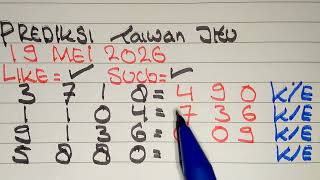 PREDIKSI Taiwan JITU
19 MEI 2026
LIKE = ✓ SUCO = ✓
3 7 1 8 = 4 9 0 K/E
1 1 0 4 = 7 3 6 K/E
9 1 3 6 = 0 9 K/E
5 8 8 0 = K/E